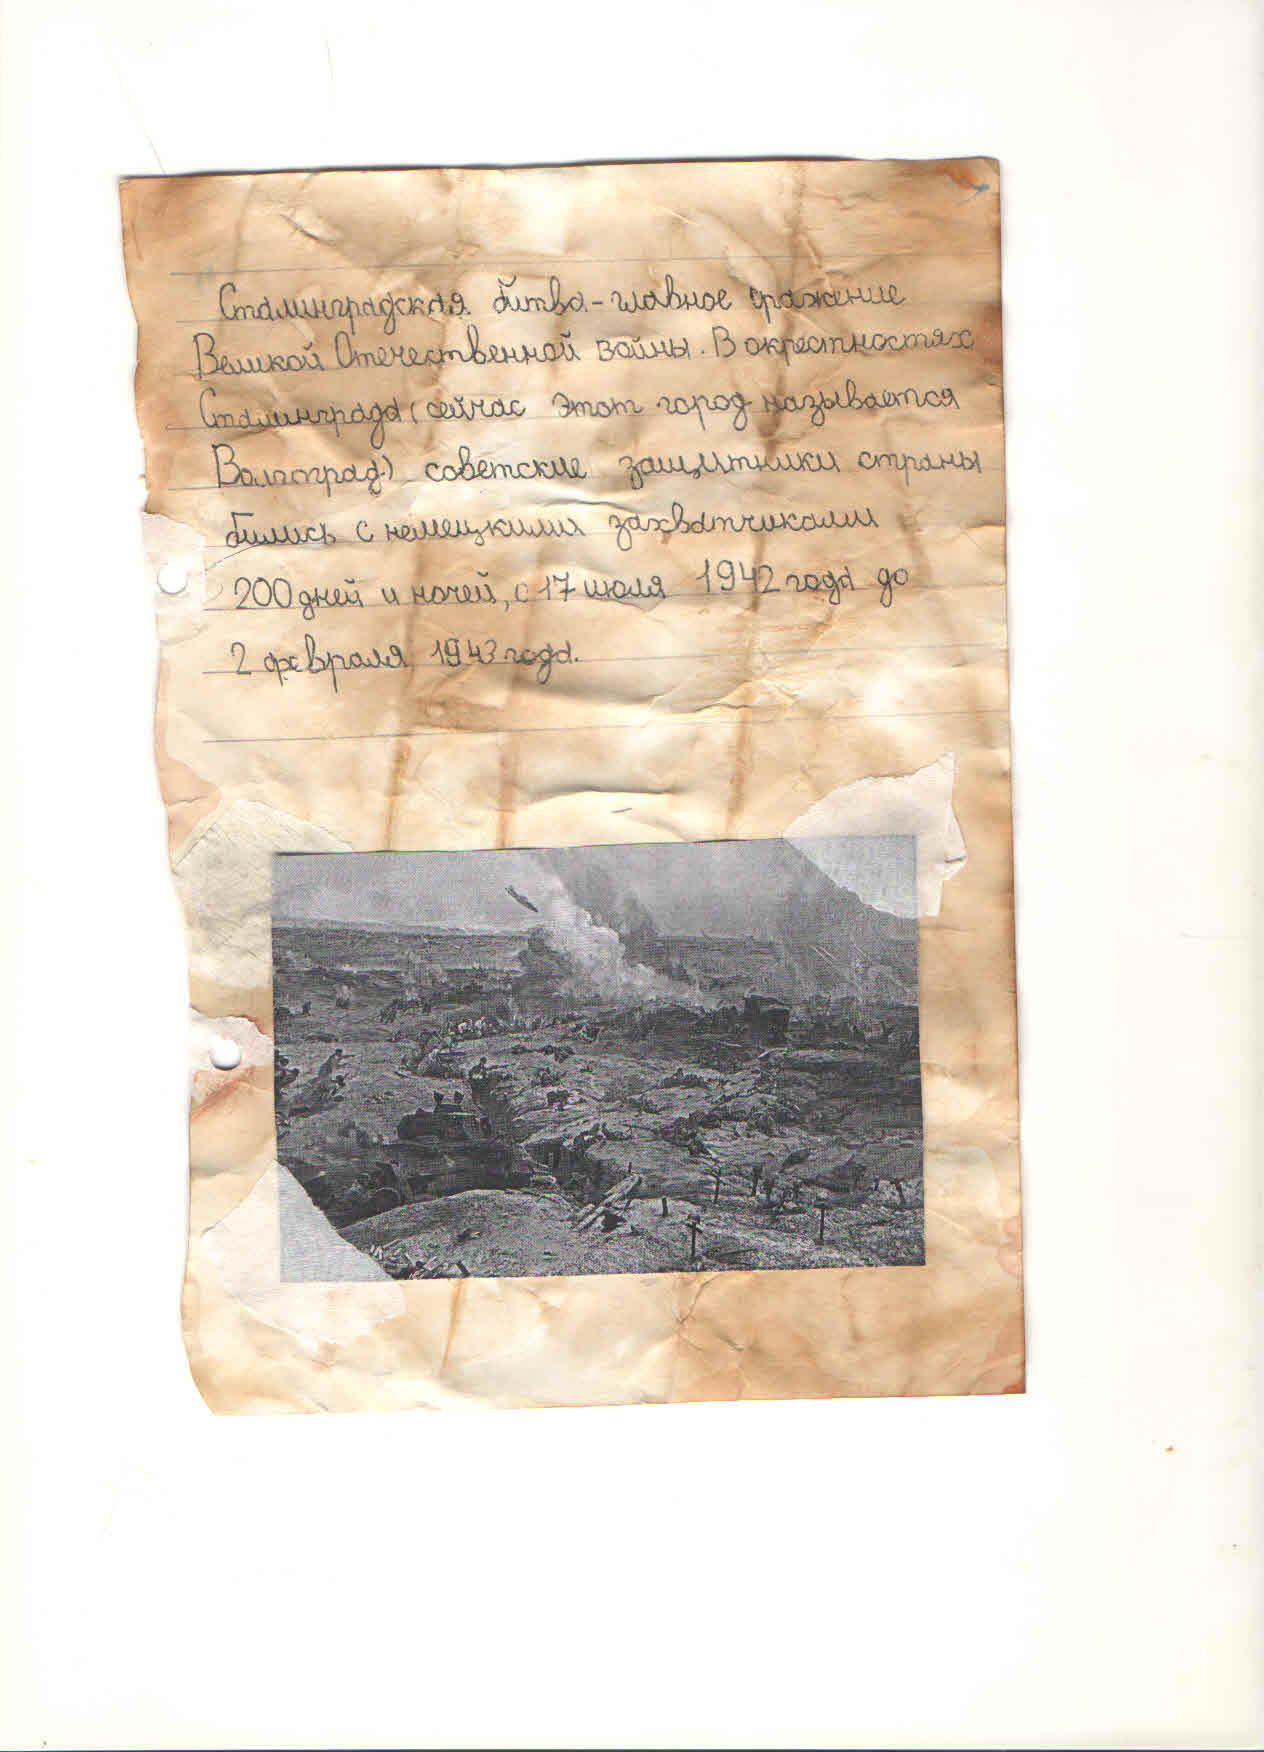 Сталинградская битва - главное сражение
Великой Отечественной войны. В окрестностях
Сталинграда (сейчас этот город называется
Волгоград) советские защитники страны
бились с немецкими захватчиками
200 дней и ночей, с 17 июля 1942 года до
2 февраля 1943 года.